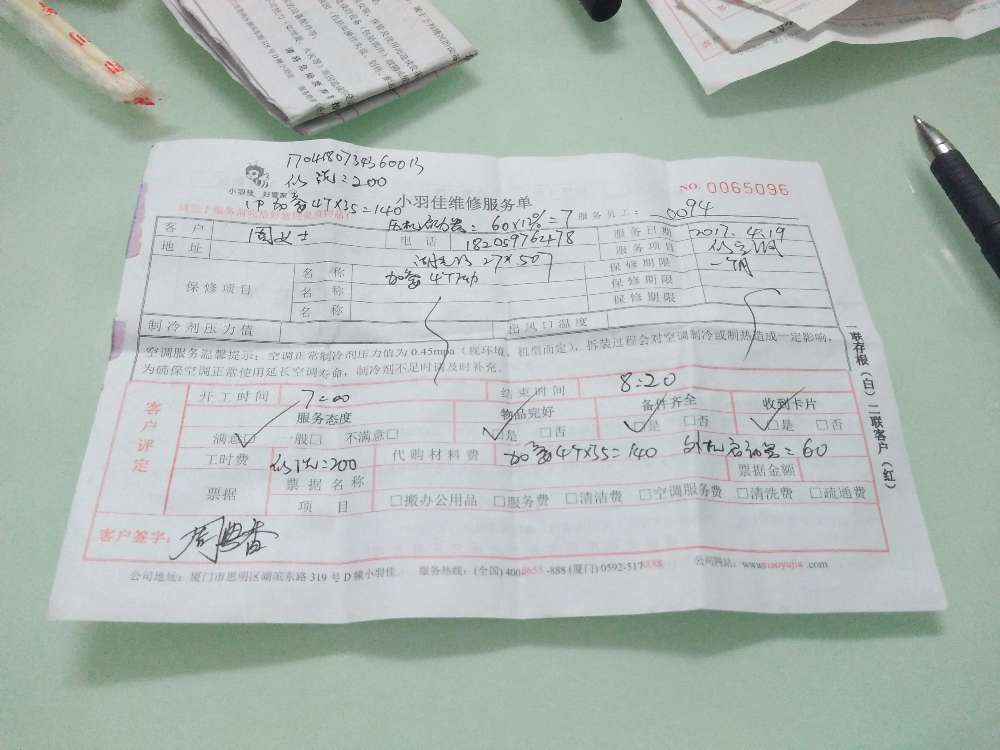 1704180734360013
小羽佳 好管家
修洗=200
加氟47×35=140
小羽佳维修服务单
NO. 0065096
60×12%=7
服务员工: 0094
客户 周女士 电话 18205976278 服务日期 2017.4.19
地址 湖光路27#507 服务项目
保修项目 名称 加氟47 保修期限 一个月
名称 保修期限
名称 保修期限
制冷剂压力值 出风口温度
空调服务温馨提示:空调正常制冷剂压力值为0.45mpa(视环境、机型而定),拆装过程会对空调制冷或制热造成一定影响,
为确保空调正常使用延长空调寿命,制冷剂不足时请及时补充。
联存根(白)二联客户(红)
客户评定
开工时间 7:00 结束时间 8:20
服务态度 物品完好 备件齐全 收到卡片
满意□ 一般□ 不满意□ □是 □否 □是 □否 □是 □否
工时费 修洗=200 代购材料费 加氟47×35=140 外机启动器=60
票据 票据名称 票据金额
项目 □搬办公用品 □服务费 □清洁费 □空调服务费 □清洗费 □疏通费
客户签字:
公司地址:厦门市思明区湖滨东路319号D幢小羽佳 服务热线:(全国)4008655-888(厦门)0592-5178888 公司网站:www.xiaoyujia.com